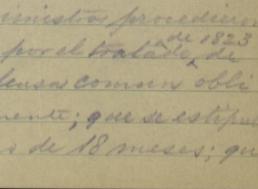 ministros procedieron
de 1823
por el tratado, de
fensa comun obli
mente; que se estipul
s de 18 meses; qu